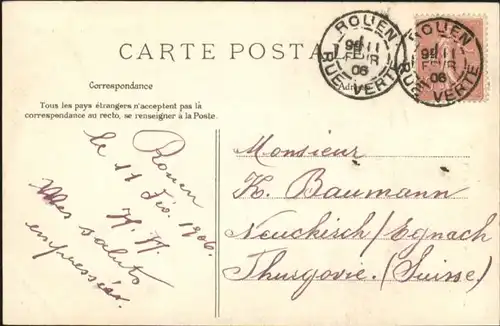 CARTE POSTA
ROUEN
11
FEVR
06
RUE VERTE
ROUEN
11
FEVR
06
RUE VERTE
Correspondance
Tous les pays étrangers n'acceptent pas la
correspondance au recto, se renseigner à la Poste.
Rouen
le 11 Fév. 1906.
H. H.
Mes saluts
empressés.
Monsieur
K. Baumann
Neuckisch/Egnach
Thurgovie. (Suisse)